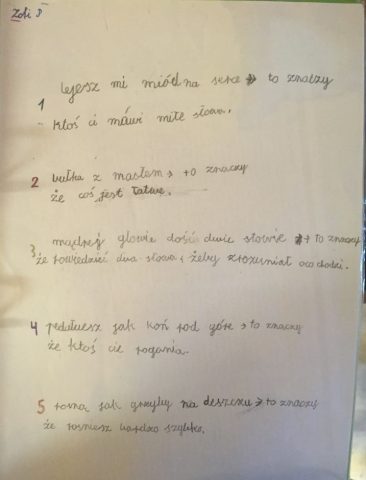 Zosi P
lejesz mi miód na serce → to znaczy
1 ktoś ci mówi miłe słowa.
2 bułka z masłem → to znaczy
że coś jest łatwe.
3 mądrej głowie dość dwie słowie → to znaczy
że powiedzieć dwa słowa, żeby zrozumiał o co chodzi.
4 pedałujesz jak koń pod górę → to znaczy
że ktoś cie pogania.
5 rosną jak grzyby na deszczu → to znaczy
że rośniesz bardzo szybko.